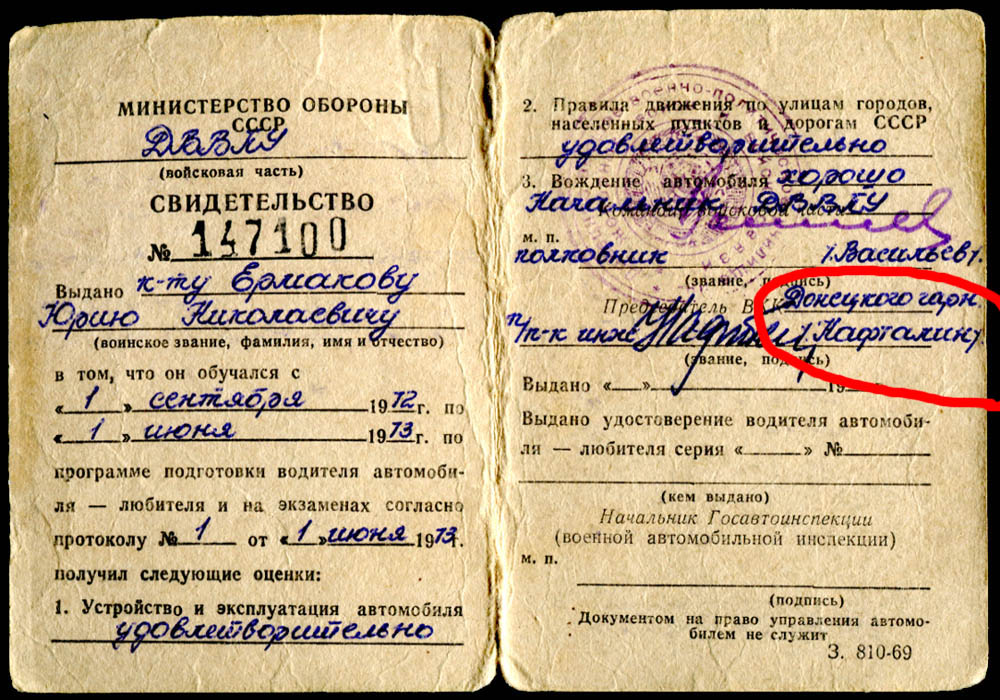 МИНИСТЕРСТВО ОБОРОНЫ
СССР
ДВВПУ
(войсковая часть)
СВИДЕТЕЛЬСТВО
№ 147100
Выдано к-ту Ермакову
Юрию Николаевичу
(воинское звание, фамилия, имя и отчество)
в том, что он обучался с
« 1 » сентября 1972 г. по
« 1 » июня 1973 г. по
программе подготовки водителя автомоби-
ля — любителя и на экзаменах согласно
протоколу № 1 от « 1 » июня 1973 г.
получил следующие оценки:
1. Устройство и эксплуатация автомобиля
удовлетворительно
2. Правила движения по улицам городов,
населенных пунктов и дорогам СССР
удовлетворительно
3. Вождение автомобиля хорошо
Начальник ДВВПУ
Командир войсковой части
м. п.
полковник /Васильев/.
(звание, подпись)
Председатель Донецкого гарн.
п/п-к инж /Нафталин/.
(звание, подпись)
Выдано « » 19
Выдано удостоверение водителя автомоби-
ля — любителя серия « » №
(кем выдано)
Начальник Госавтоинспекции
(военной автомобильной инспекции)
м. п.
(подпись)
Документом на право управления автомо-
билем не служит
З. 810-69